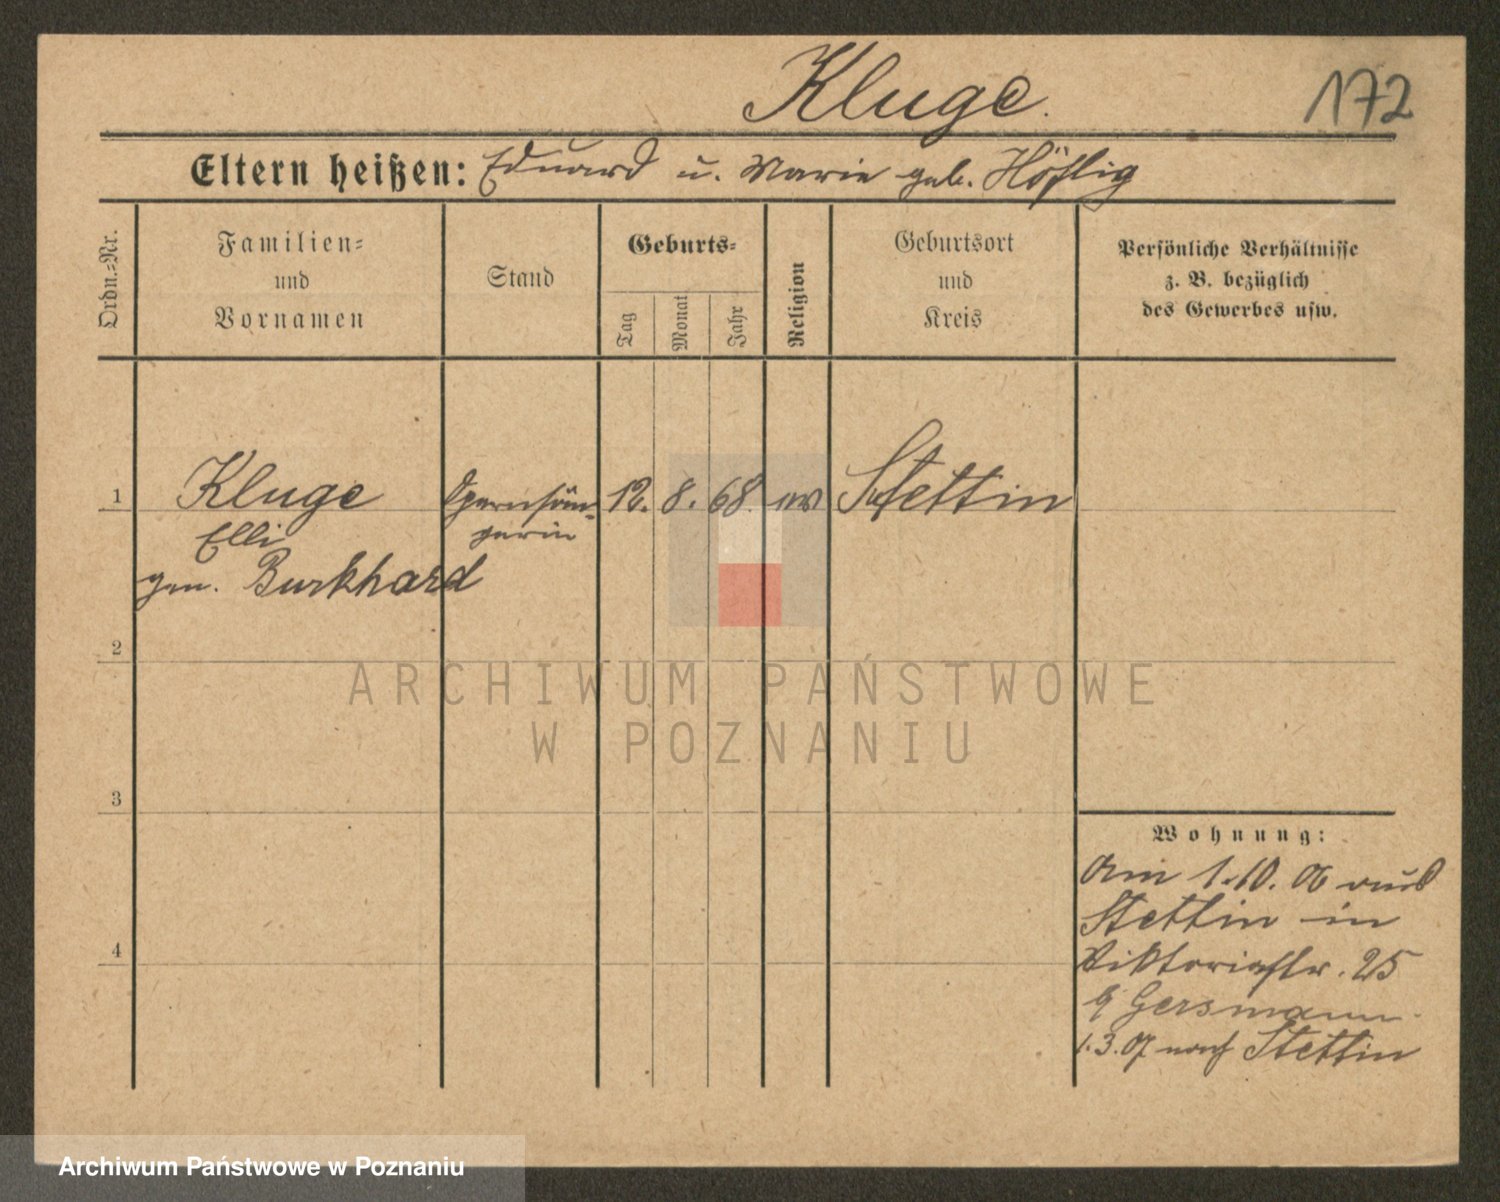 Kluge.
172
Eltern heißen: Eduard u. Marie geb. Höflig
Ordn.=Nr.
Familien=
und
Vornamen
Stand
Geburts=
Tag
Monat
Jahr
Religion
Geburtsort
und
Kreis
Persönliche Verhältnisse
z. B. bezüglich
des Gewerbes usw.
1 Kluge Opernsän- 12. 8. 68. ev Stettin
Elli gerin
gen. Burkhard
2
ARCHIWUM PAŃSTWOWE
W POZNANIU
3
Wohnung:
Am 1.10. 06 aus
Stettin in
4
Viktoriastr. 25
b/ Gersmann.
1.3.07 nach Stettin
Archiwum Państwowe w Poznaniu